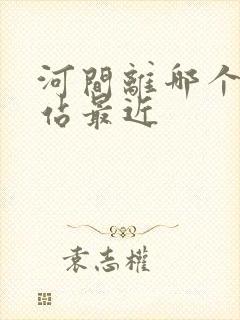 河間離那个
佔最近
袁志權